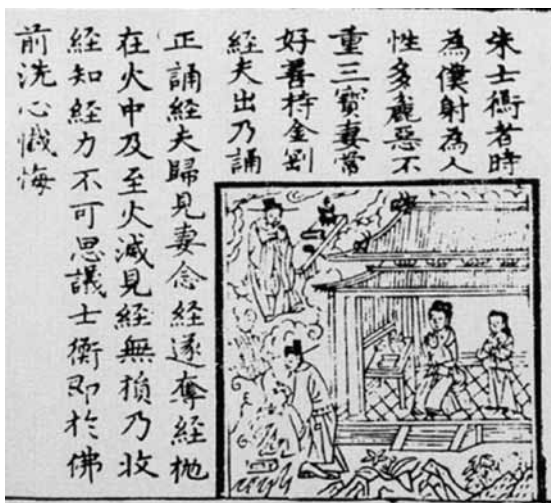 朱士衡者時
為僕射為人
性多麁惡不
重三寶妻常
好善持金剛
經夫出乃誦
正誦經夫歸見妻念經遂奪經抛
在火中及至火滅見經無損乃收
經知經力不可思議士衡即於佛
前洗心懺悔